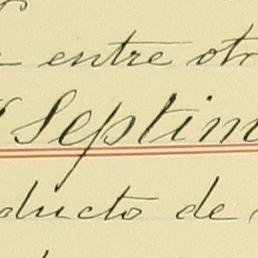 entre otr
Septim
ducto de